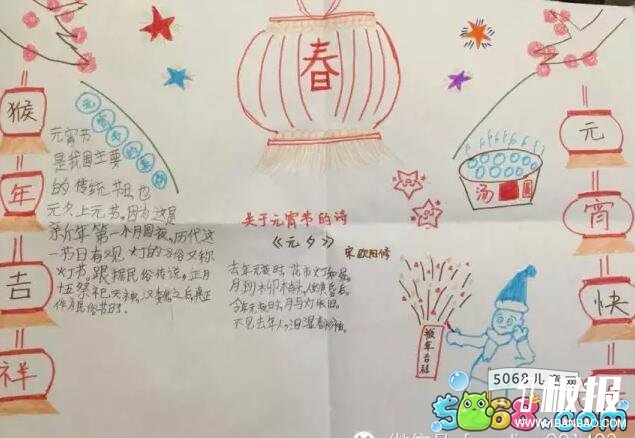 春
猴
年
吉
祥
元宵节
是我国主要
的传统节日,也
元夕上元节。因为这是
新年第一个月圆夜,历代这
一节日有观灯的习俗又称
灯节,跟据民俗传说,正月
作为民俗节日。
关于元宵节的诗
《元夕》
宋 欧阳修
去年元夜时 花市灯如昼。
今年元夜时 月与灯依旧。
不见去年人,泪湿春衫袖。
汤圆
猴年吉祥
元
宵
快
5068儿童网
5068.com
板报